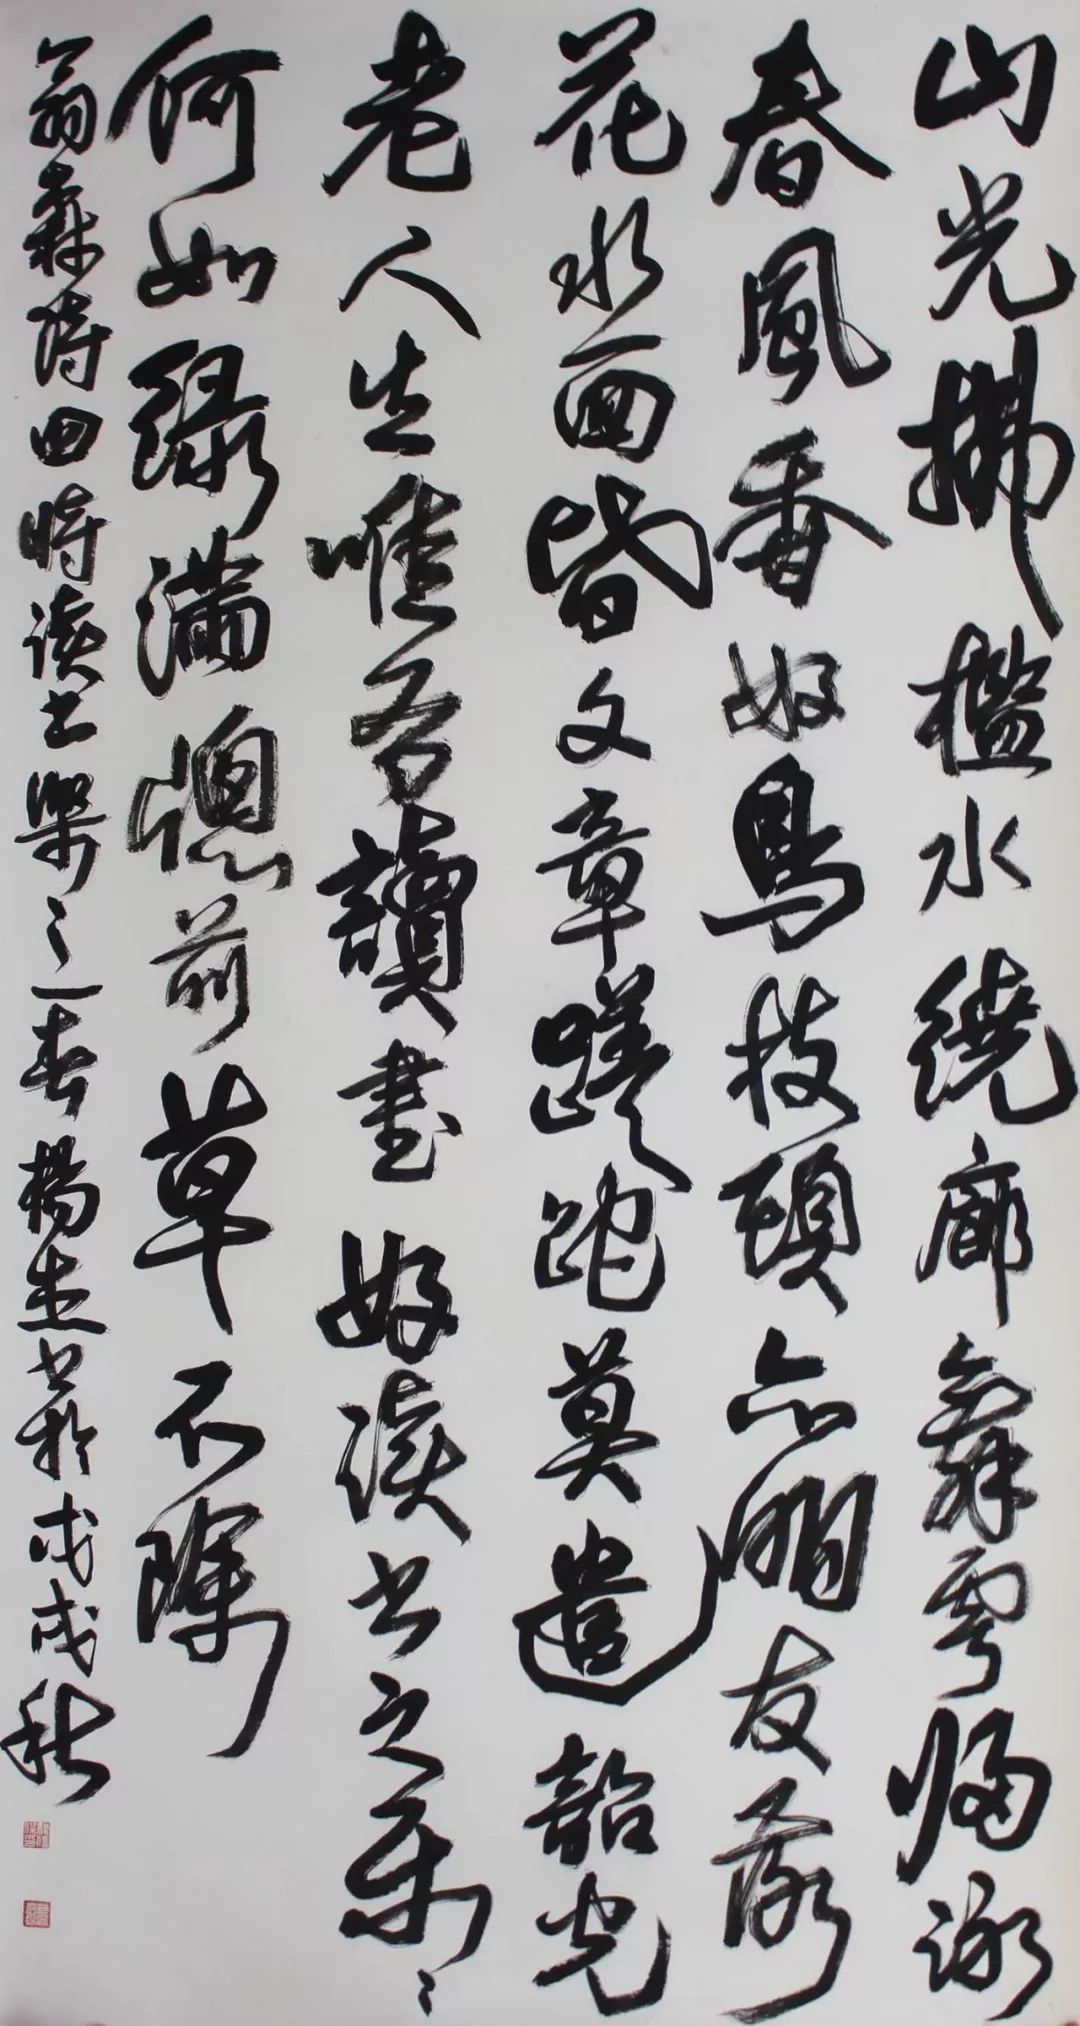 山光拂檻水繞廊舞雩歸詠
春風香好鳥枝頭亦朋友落
花水面皆文章蹉跎莫遣韶光
老人生唯有讀書好读书之樂〻
何如緑滿牕前草不除
翁森詩四時读书樂之一春 楊杰书於戊戌秋